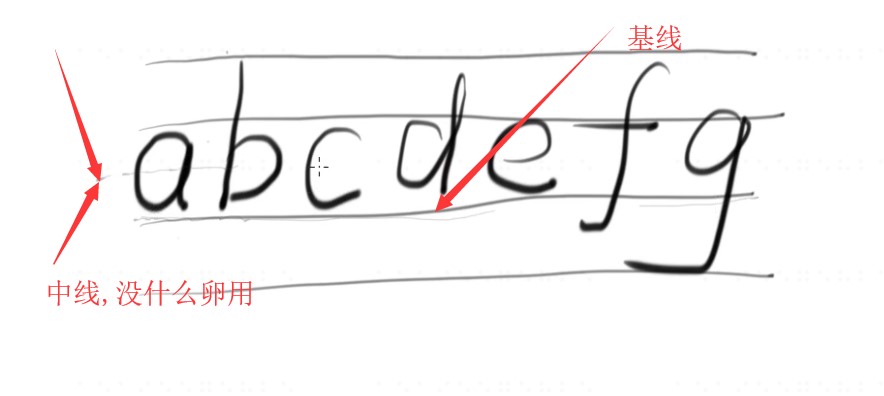 基线
abcdefg
中线,没什么卵用